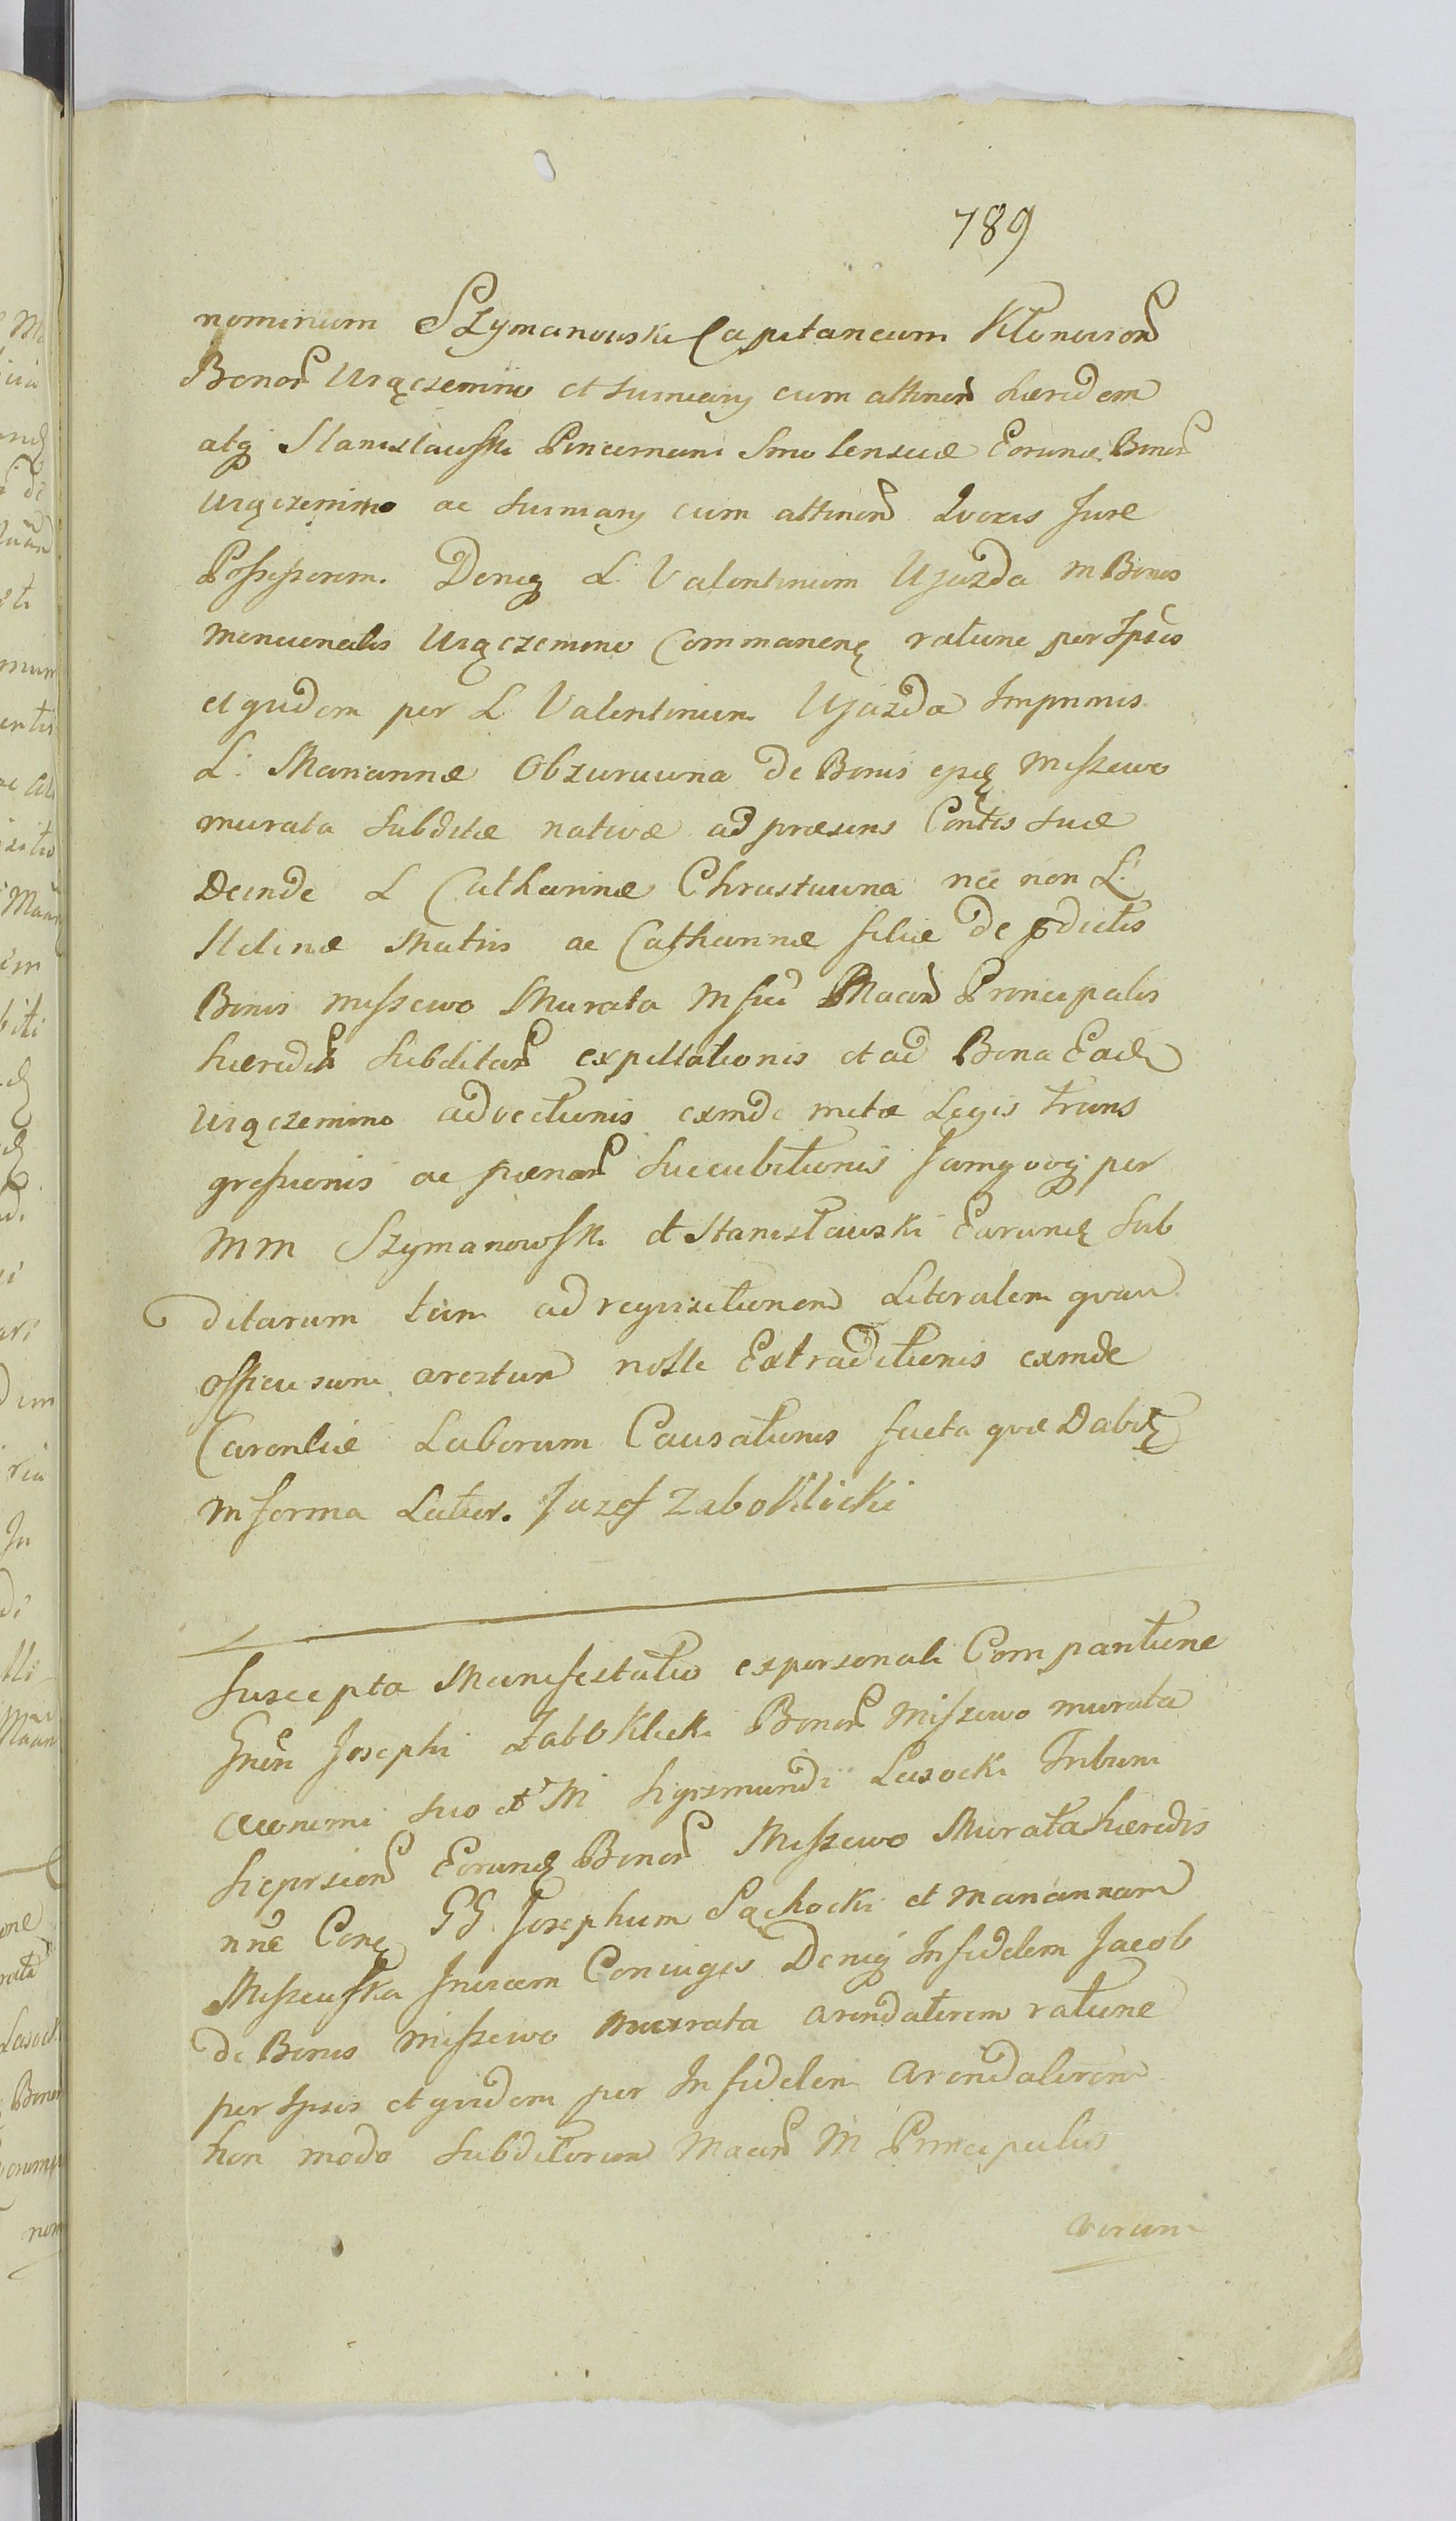 789
nominum Szymanowski Capitaneum Klonovien
Bonor Urączemino et Sumiany cum attinen hæredem
atq Stanisławski Pincernam Smolenscæ Eorund Bonor
Urączemino ac Sumiany cum attinen Uxoris Jure
Possessorem. Deniq L. Valentinum Ujazda in Bonis
Urączemino Commanen ratione per Ipsos
et quidem per L Valentinum Ujazda Imprimis
L. Mariannæ Obzurowna de Bonis ejsd Miszewo
murata Subditæ nativæ ad præsens Contis suæ
Deinde L Catharinæ Chrustowna nec non L.
Matris ac Catharinæ filiæ de pdictis
Bonis Miszewo Murata Mfici Macn Principalis
hæredis Subditar expillationis et ad Bona Ead
Urączemino advectionis exinde metæ Legis trans
gressionis ac pænar Succubitionis Jamqvoq per
MM Szymanowski et Stanisławski Earund Sub
ditarum tam ad reqvisitionem Literalem qvam
officiosum arestum nolle Extraditionis exinde
Carentiæ Laborum Causationis facta qvæ Dabit
in forma Latior. Jozef Zaboklicki
Suscepta Manifestatio ex personali Comparitione
Gnën Josephi Zaboklicki Bonor Miszewo murata
Œconomi suo et M Sigismundi Lasocki Tribuni
Eorund Bonor Miszewo Murata hæredis
nne Con GG Josephum Sąchocki et Mariannam
Miszewska Invicem Coniuges Deniq Infidelem Jacob
de Bonis Miszewo murata arendatorem ratione
per Ipsos et qvidem per Infidelem Arendatorem
hon modo Subditorum Macn M Principalis
verum